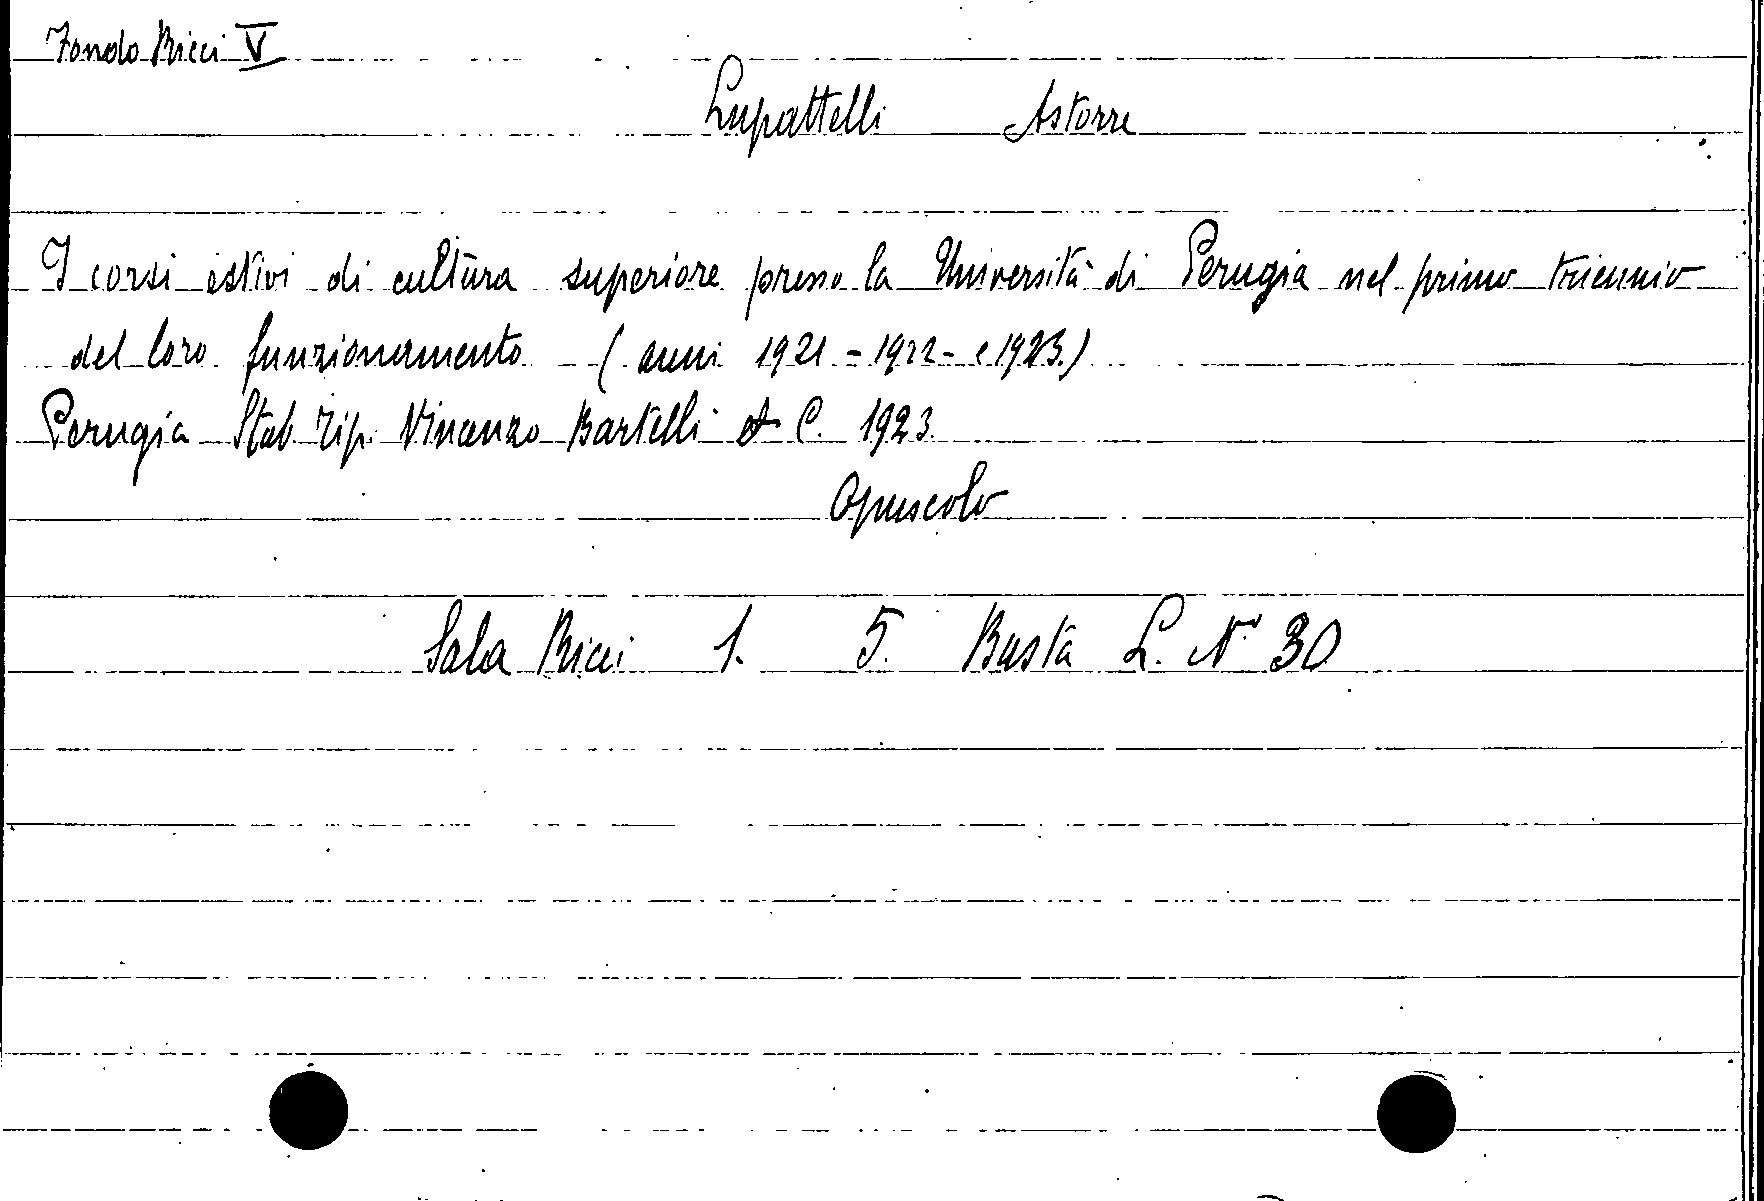 Fondo Ricci V
Lupattelli Astorre
I corsi estivi di cultura superiore presso la Università di Perugia nel primo triennio
del loro funzionamento (anni 1921 - 1922 - e 1923.)
Perugia Stab. Tip. Vincenzo Bartelli & C. 1923.
Opuscolo
Sala Ricci 1. 5. Busta L. N° 30